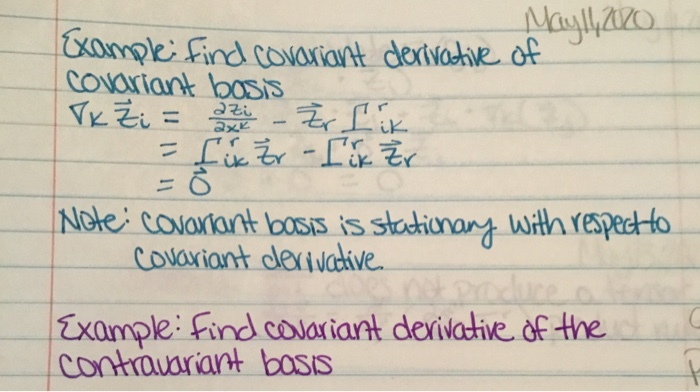 May 11, 2020
Example: find covariant derivative of
covariant basis
∇ₖ Z⃗ᵢ = ∂Zᵢ/∂xᵏ - Z⃗ᵣ Γʳᵢₖ
= Γʳᵢₖ Z⃗ᵣ - Γʳᵢₖ Z⃗ᵣ
= 0⃗
Note: covariant basis is stationary with respect to
covariant derivative.
Example: find covariant derivative of the
contravariant basis